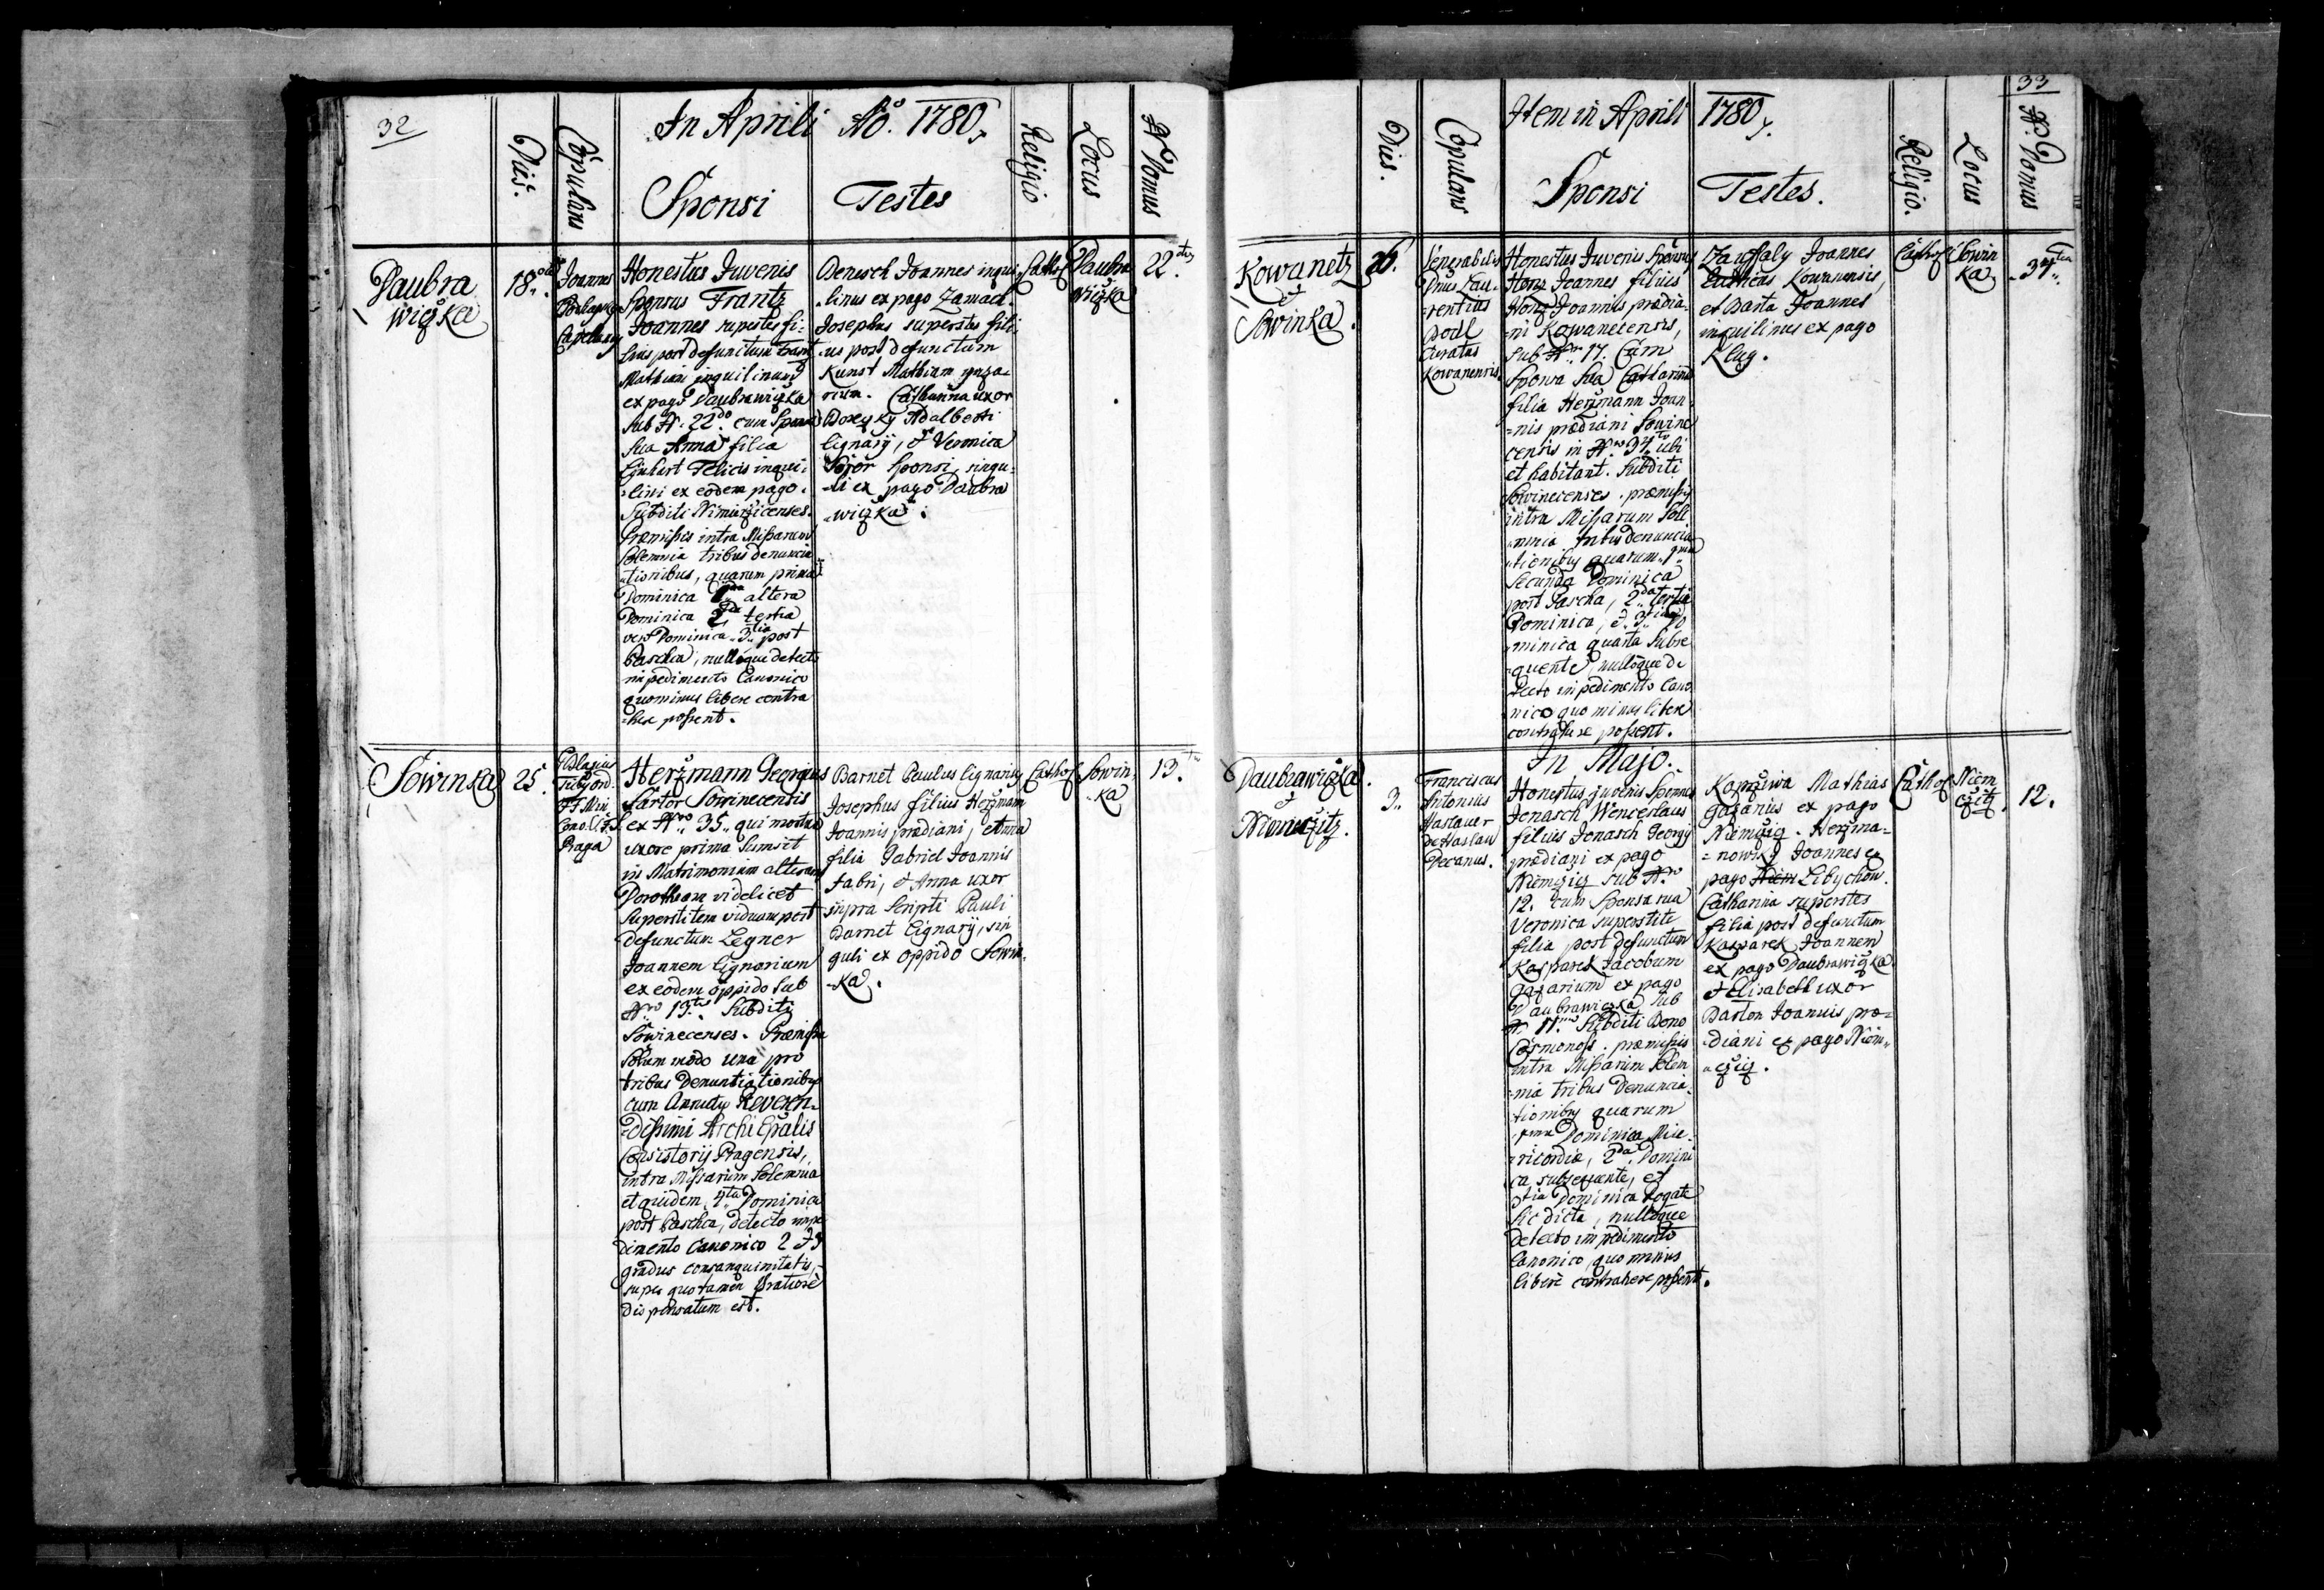 32
In Aprili Aõ. 1780
Dies.
Copulans
Sponsi
Testes
Religio
Locus
N Domus
Daubra
wiczka
18.
Joannes
Capellanus
Honestus Juvenis
Sponsus Frantz
Joannes superstes fi-
lius post defunctum Frantz
Mathiam inquilinum
ex pago Daubrawiczka
sub N. 22do cum Sponsa
sua Anna filia
Felicis inqui-
lini ex eodem pago.
Subditi Nimierzicenses.
Præmissis intra Missarum
Solemnia tribus denuncia-
tionibus, quarum prima
Dominica 1ma altera
Dominica 2da tertia
vero Dominica 3tia post
Pascha, nulloque detecto
impedimento Canonico
quominus libere contra
here possent.
Benesch Joannes inqui-
linus ex pago Zamach.
Josephus superstes fili-
us post defunctum
Kunst Mathiam
Catharina uxor
Adalberti
lignarij, et Veronica
Soror Sponsi, singu-
li ex pago Daubra
wiczka.
Cathol
Daubra
wiczka
22.
Sowinka
25.
Blasius
Praga
Herzmann Georgius
Sartor Sowinecensis
ex Nro 35 qui mortua
uxore prima sumsit
in Matrimonium alteram
Dorotheam videlicet
Superstitem viduam post
defunctum Legner
Joannem lignarium
ex eodem oppido sub
Nro 13. Subditi
Sowinecenses. Præmissa
solum modo una pro
tribus Denuntiationibus
cum Annutu Reveren-
dissimi Archi Epalis
Consistorij Pragensis,
intra Missarum Solemnia
et quidem 4ta Dominica
post Pascha, detecto impe
dimento Canonico 2 et 3
gradus consanguinitatis,
super quo tamen
dispensatum est.
Barnet Paulus lignarius
Josephus filius Herzmann
Joannis prædiani, Anna
filia Gabriel Joannis
Fabri, et Anna uxor
supra scripti Pauli
Barnet lignarij, sin
guli ex oppido Sowin-
ka.
Cathol
Sowin
ka
13.
33
Item in Aprili 1780
Dies.
Copulans
Sponsi
Testes.
Religio.
Locus
N. Domus
Kowanetz
et
Sowinka.
26.
Venerabilis
Dñus Lau-
rentius
Curatus
Kowanensis.
Honestus Juvenis Sponsus
Honz Joannes filius
Honz Joannis prædia-
ni Kowanecensis,
sub Nro 17. Cum
Sponsa sua Catharina
filia Herzmann Joan-
nis prædiani Sowine
censis in Nro 34 ubi
et habitant. Subditi
Sowinecenses. præmissis
intra Missarum Sole
mnia tribus denuncia
tionibus quarum 1ma
Secunda Dominica
post Pascha, 2da tertia
Dominica, et 3tia Do
minica quarta subse
quente, nulloque de
tecto impedimento Cano
nico quo minus libere
contrahere possent.
Zaussaly Joannes
Kowanensis,
et Barta Joannes
inquilinus ex pago
Klug.
Cathol
Sowin
ka
34
In Majo.
Daubrawiczka
et
Niemczitz.
3.
Franciscus
Antonius
Haslauer
de Haslau
Decanus.
Honestus juvenis Sponsus
Jenasch Wenceslaus
filius Jenasch Georgij
prædiani ex pago
Niemczicz sub Nro
12. cum Sponsa sua
Veronica superstite
filia post defunctum
Kasparek Jacobum
ex pago
Daubrawiczka sub
N 11. Subditi Bono
Cosmonoss. præmissis
intra Missarum solem
nia tribus Denuncia-
tionibus quarum
1ma Dominica Mise-
ricordia, 2da Domini
ca subsequente, et
3tia Dominica Rogate
sic dicta, nulloque
detecto impedimento
Canonico, quo minus
libere contrahere possent.
Kopřiwa Mathias
ex pago
Niemczicz. Herzma-
nowsky Joannes ex
pago Libychow.
Catharina superstes
filia post defunctum
Kasparek Joannem
ex pago Daubrawiczka
et Elisabeth uxor
Barton Joannis præ-
diani ex pago Niem-
czicz.
Cathol
Niem
czitz
12.